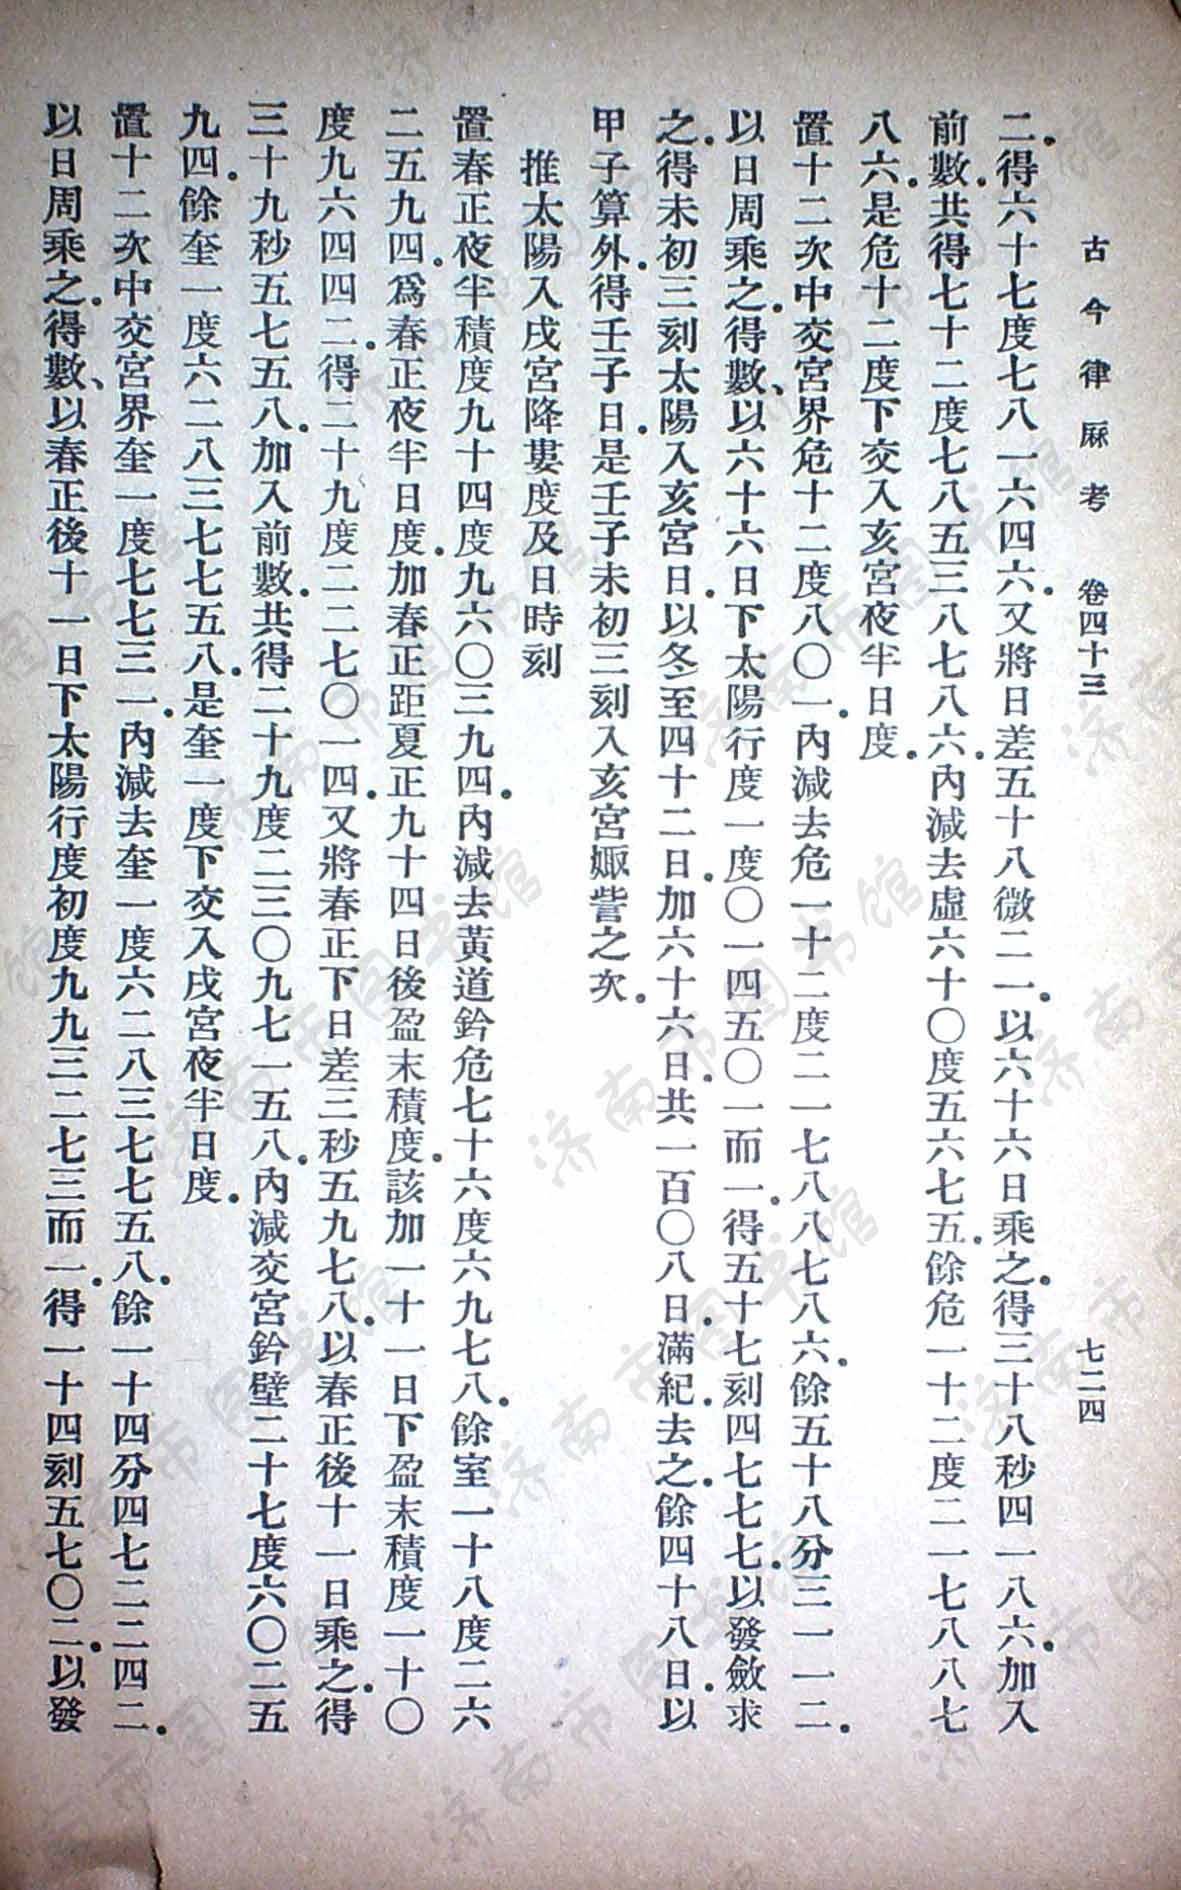 古今律厤考 卷四十三 七二四
二。得六十七度七八一六四六。又將日差五十八微二一。以六十六日乘之。得三十八秒四一八六。加入
前數。共得七十二度七八五三八七八六。內減去虛六十〇度五六七五。餘危一十二度二一七八八七
八六。是危十二度下交入亥宮夜半日度。
置十二次中交宮界危十二度八〇一。內減去危一十二度二一七八八七八六。餘五十八分三一一二。
以日周乘之。得數、以六十六日下太陽行度一度〇一四五〇一而一。得五十七刻四七七七。以發斂求
之。得未初三刻太陽入亥宮日。以冬至四十二日。加六十六日。共一百〇八日。滿紀去之。餘四十八日。以
甲子算外。得壬子日。是壬子未初三刻入亥宮娵訾之次。
推太陽入戌宮降婁度及日時刻
置春正夜半積度九十四度九六〇三九四。內減去黃道鈐危七十六度六九七八。餘室一十八度二六
二五九四。爲春正夜半日度。加春正距夏正九十四日後盈末積度。該加一十一日下盈末積度一十〇
度九六四四二。得二十九度二二七〇一四。又將春正下日差三秒五九七八。以春正後十一日乘之。得
三十九秒五七五八。加入前數。共得二十九度二三〇九七一五八。內減交宮鈐壁二十七度六〇二五
九四。餘奎一度六二八三七七五八。是奎一度下交入戌宮夜半日度。
置十二次中交宮界奎一度七七三一。內減去奎一度六二八三七七五八。餘一十四分四七二二四二。
以日周乘之。得數、以春正後十一日下太陽行度初度九九三二七三而一。得一十四刻五七〇二。以發